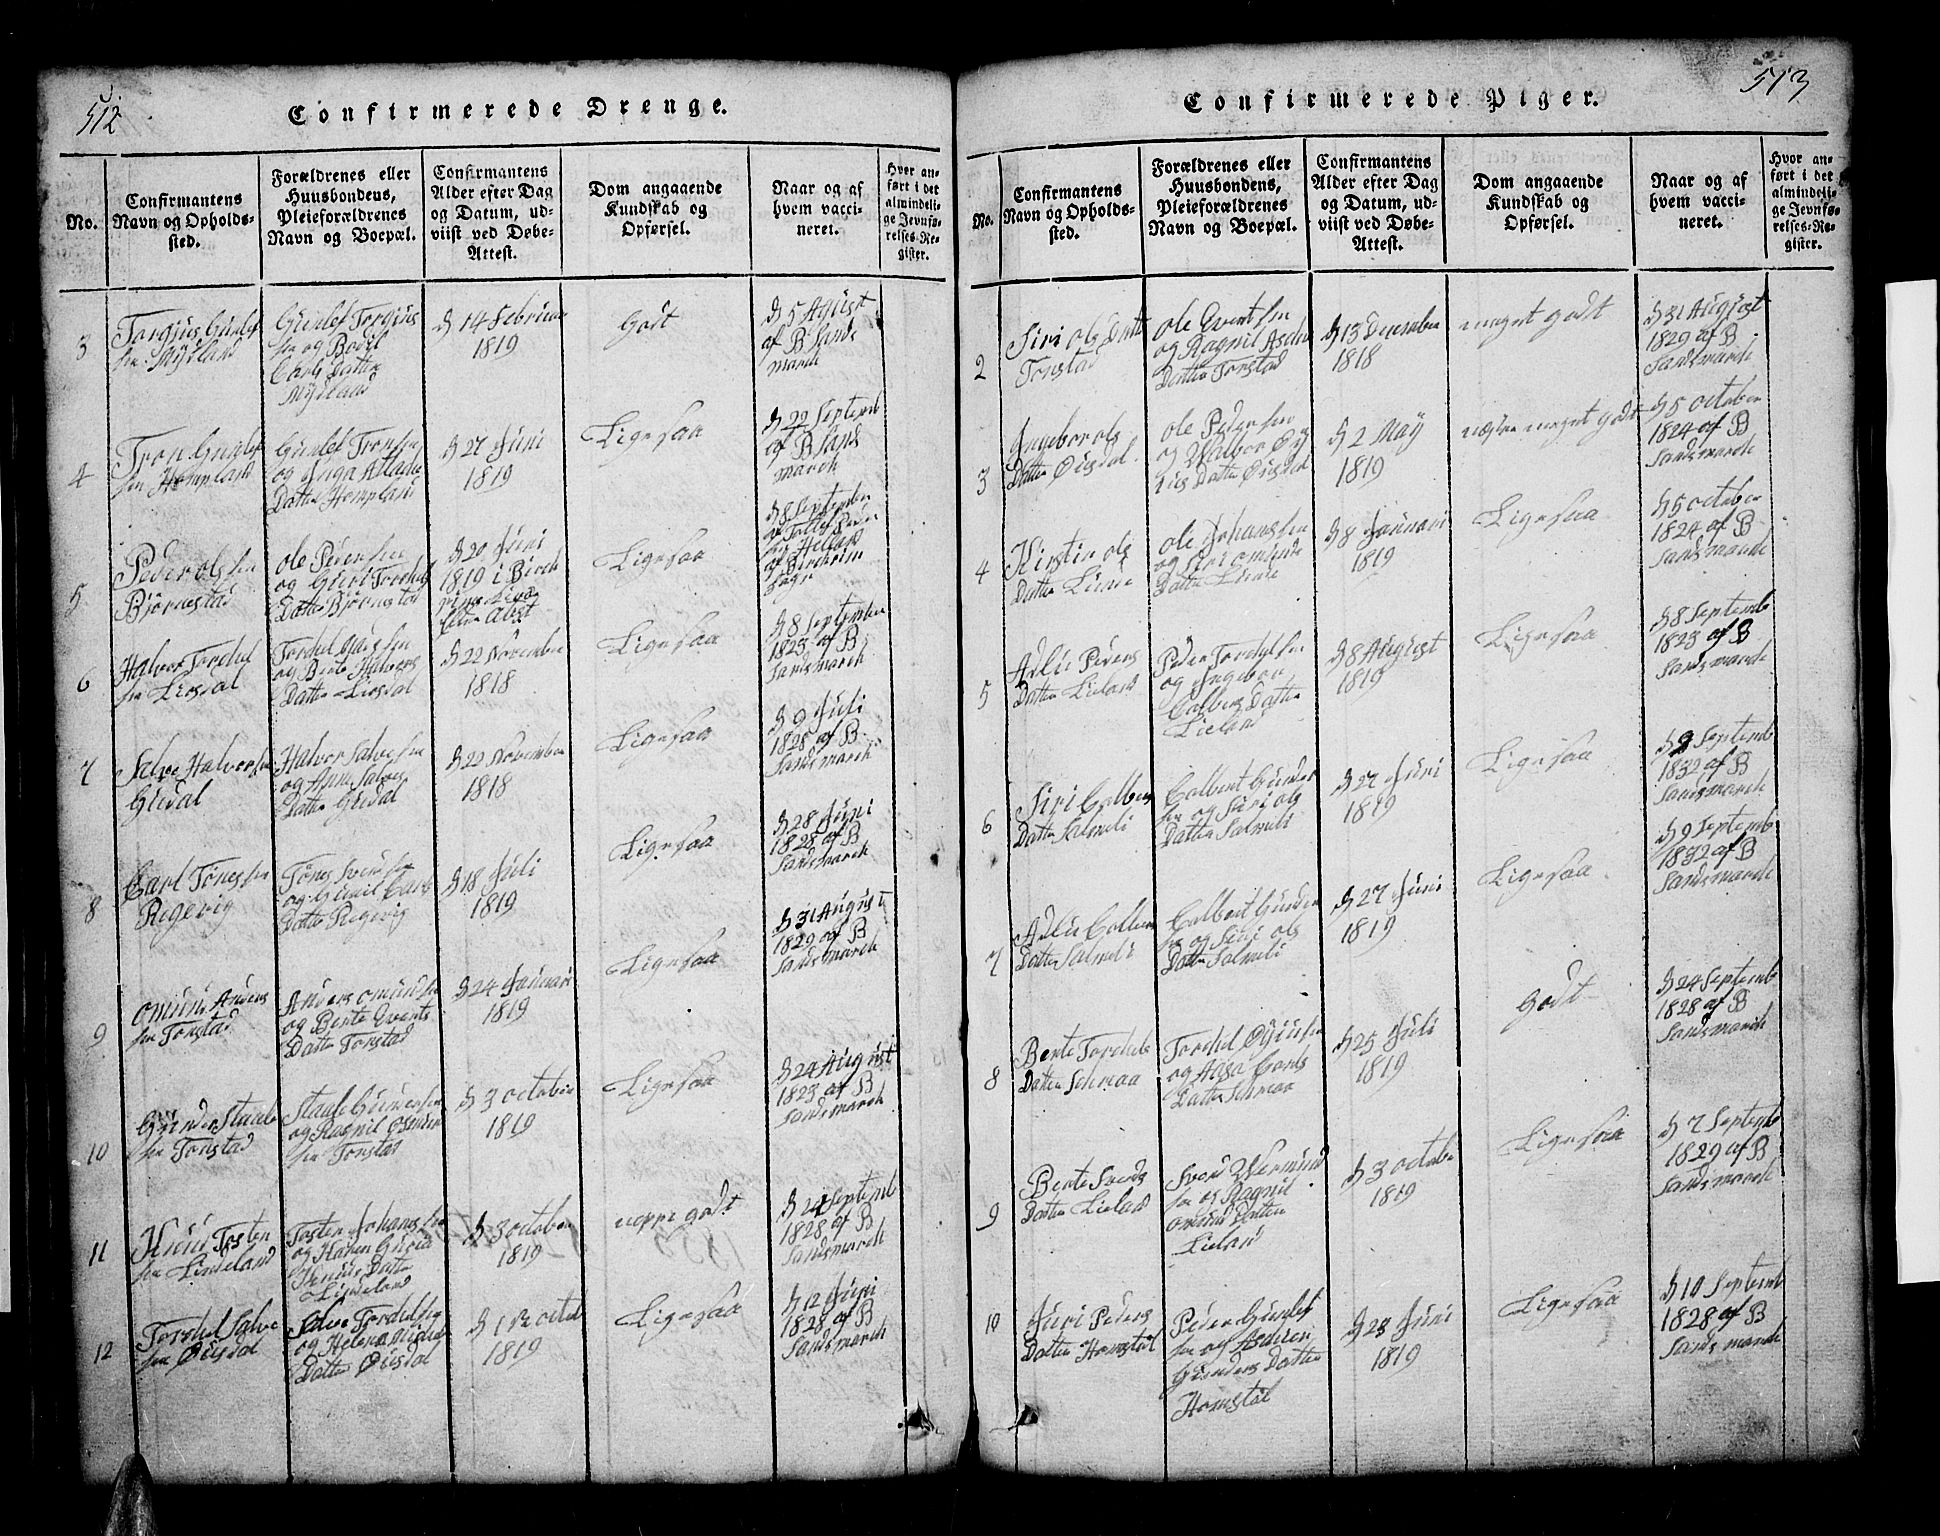 512
Confirmerede Drenge.
No.
Confirmantens
Navn og Opholds-
sted.
Forældrenes eller
Huusbondens,
Pleieforældrenes
Navn og Boepæl.
Confirmantens
Alder efter Dag
og Datum, ud-
viist ved Døbe-
Attest.
Dom angaaende
Kundskab og
Opførsel.
Naar og af
hvem vacci-
neret.
Hvor an-
ført i det
almindeli-
ge Jevnfø-
relses-Re-
gister.
3
Torgius Gunlef
sen Mysland
Gunlef Torgius
sen og Bodil
Carls Datter
Mysland
d 14 Februar
1819
Godt
d 5 August
af B Sands
march
4
Tron Gunlef
sen Hompland
Gunlef Tronsen
og Inga Atlaks
Datter Hompland
d 27 Juni
1819
Ligesaa
d 22 Septemb
af B Sands
march
5
Peder olssen
Bjørnestad
ole Pedersen
og Guri Tordels
Datter Bjørnestad
d 20 Juni
1819 i Birch
d 8 September
Ligesaa
6
Halvor Tordel
sen Liosdal
og Berte Halvors
Datter Liosdal
d 22 November
1818
Ligesaa
d 8 September
1823 af B
Sandsmarch
7
Salve Halvorsen
Gusdal
Halvor Salvesen
og Anne Salves
Datter Gusdal
d 22 November
1818
Ligesaa
d 9 Juli
1828 af B
Sandsmarch
8
Carl Tønessen
Regevig
Tønes Svensen
og Gunil Carls
Datter Regevig
d 18 Juli
1819
Ligesaa
d 28 Juni
1828 af B
Sandsmarch
9
Omund Anders
sen Tonstad
Anders Omundsen
og Berte Everts
Datter Tonstad
d 24 Januari
1819
Ligesaa
d 31 August
1829 af B
Sandsmarch
10
Gunder Staale
sen Tonstad
Staale Gundersen
og Ragnil
sen Tonstad
d 3 october
1819
Ligesaa
d 24 August
1823 af B
Sandsmarch
11
Tosten
sen Lindeland
Tosten Johanssen
og Karen
Datter
Lindeland
d 3 october
1819
neppe godt
d 24 Septemb
1828 af B
Sandsmarch
12
Tordel Salve
sen Øiusdal
Salve Tordelsen
og Helena
Datter Øiusdal
1819
Ligesaa
d 12 Juni
1828 af B
Sandsmarch
513
Confirmerede Piger.
No.
Confirmantens
Navn og Opholds-
sted.
Forældrenes eller
Huusbondens,
Pleieforældrenes
Navn og Boepæl.
Confirmantens
Alder efter Dag
og Datum, ud-
viist ved Døbe-
Attest.
Dom angaaende
Kundskab og
Opførsel.
Naar og af
hvem vacci-
neret.
Hvor an-
ført i det
almindeli-
ge Jevnfø-
relses-Re-
gister.
2
Siri ols Datter
Tonstad
ole Evertsen
og Ragnil
Datter Tonstad
d 13 December
1818
meget godt
d 31 August
1829 af B
Sandsmarch
3
Ingebor ols
Datter Øiusdal
ole Pedersen
og Valbor
Datter Øiusdal
d 2 May
1819
næsten meget godt
d 5 october
1824 af B
Sandsmarch
4
Kirstin ols
Datter Liende
ole Johanssen
og Siri omunds
Datter Liende
d 8 Januari
1819
Ligesaa
d 5 october
1824 af B
Sandsmarch
5
Adlu Peders
Datter Lieland
Peder Tordelsen
og Ingebor
Colbens Datter
Lieland
d 8 August
1819
Ligesaa
d 8 Septemb
1823 af B
Sandsmarch
6
Siri Colbens
Datter Salmeli
Colbent Gunder
sen og Siri ols
Datter Salmeli
d 27 Juni
1819
Ligesaa
d 9 Septemb
1832 af B
Sandsmarch
7
Adlu Colbens
Datter Salmeli
Colbent Gunder
sen og Siri ols
Datter Salmeli
d 27 Juni
1819
Ligesaa
d 9 Septemb
1832 af B
Sandsmarch
8
Berte Tordels
Datter Schreaa
Tordel
og Aasa Carls
Datter Schreaa
d 25 Juli
1819
Godt
d 24 Septemb
1828 af B
Sandsmarch
9
Berte Svends
Datter Lieland
Svend Vermund
sen og Ragnil
Omunds Datter
Lieland
d 3 october
1819
Ligesaa
d 7 Septemb
1829 af B
Sandsmarch
10
Juri Peders
Datter Homstøl
Peder Gunlef
sen og
Gunders Datter
Homstøl
d 28 Juni
1819
Ligesaa
d 10 Septemb
1828 af B
Sandsmarch